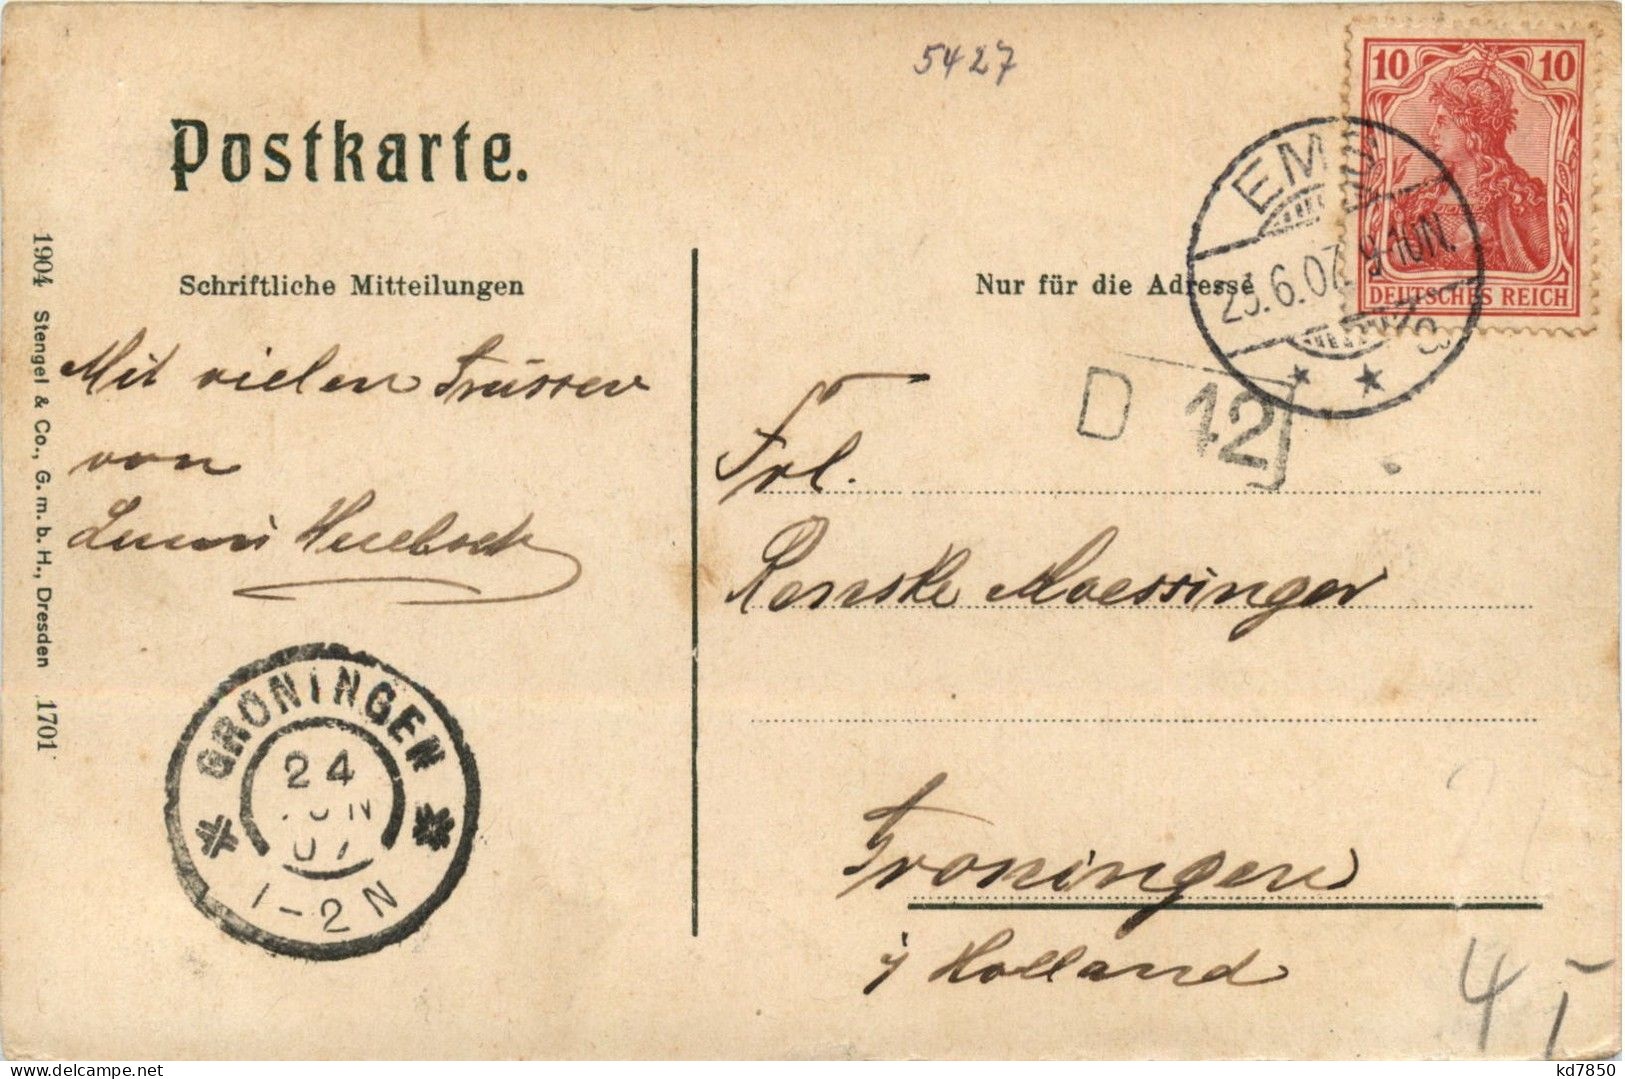 5427
10 10
DEUTSCHES REICH
EMD
23.6.07 9-10N.
Postkarte.
Schriftliche Mitteilungen
Nur für die Adresse
D 12
Mit vielen Grüssen
von
Frl.
Renske Moessinger
Groningen
i/ Holland
GRONINGEN
24
JUN
07
1-2 N
1904 Stengel & Co., G. m. b. H., Dresden 1701
4
kd7850